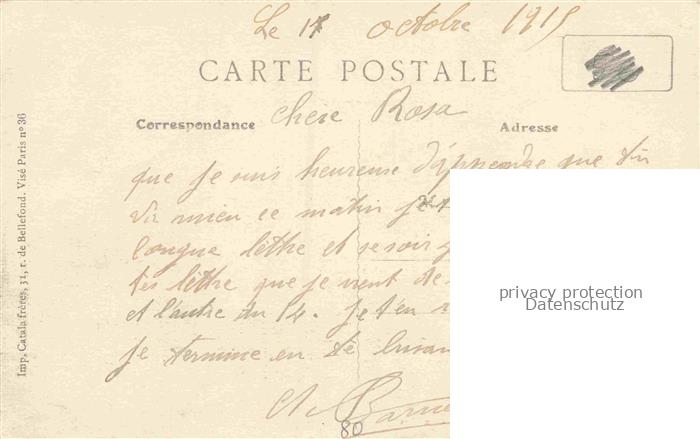 Le 17 octobre 1915
CARTE POSTALE
Chère Rosa
Correspondance
Adresse
que je suis heureuse d'apprendre que tu
va mieu ce matin je
longue lettre et se soir
tes lettre que je vient de
et l'autre du 14. Je t'en
je termine en te
80
Imp. Catala frères, 31, r. de Bellefond. Visé Paris n° 36
privacy protection
Datenschutz